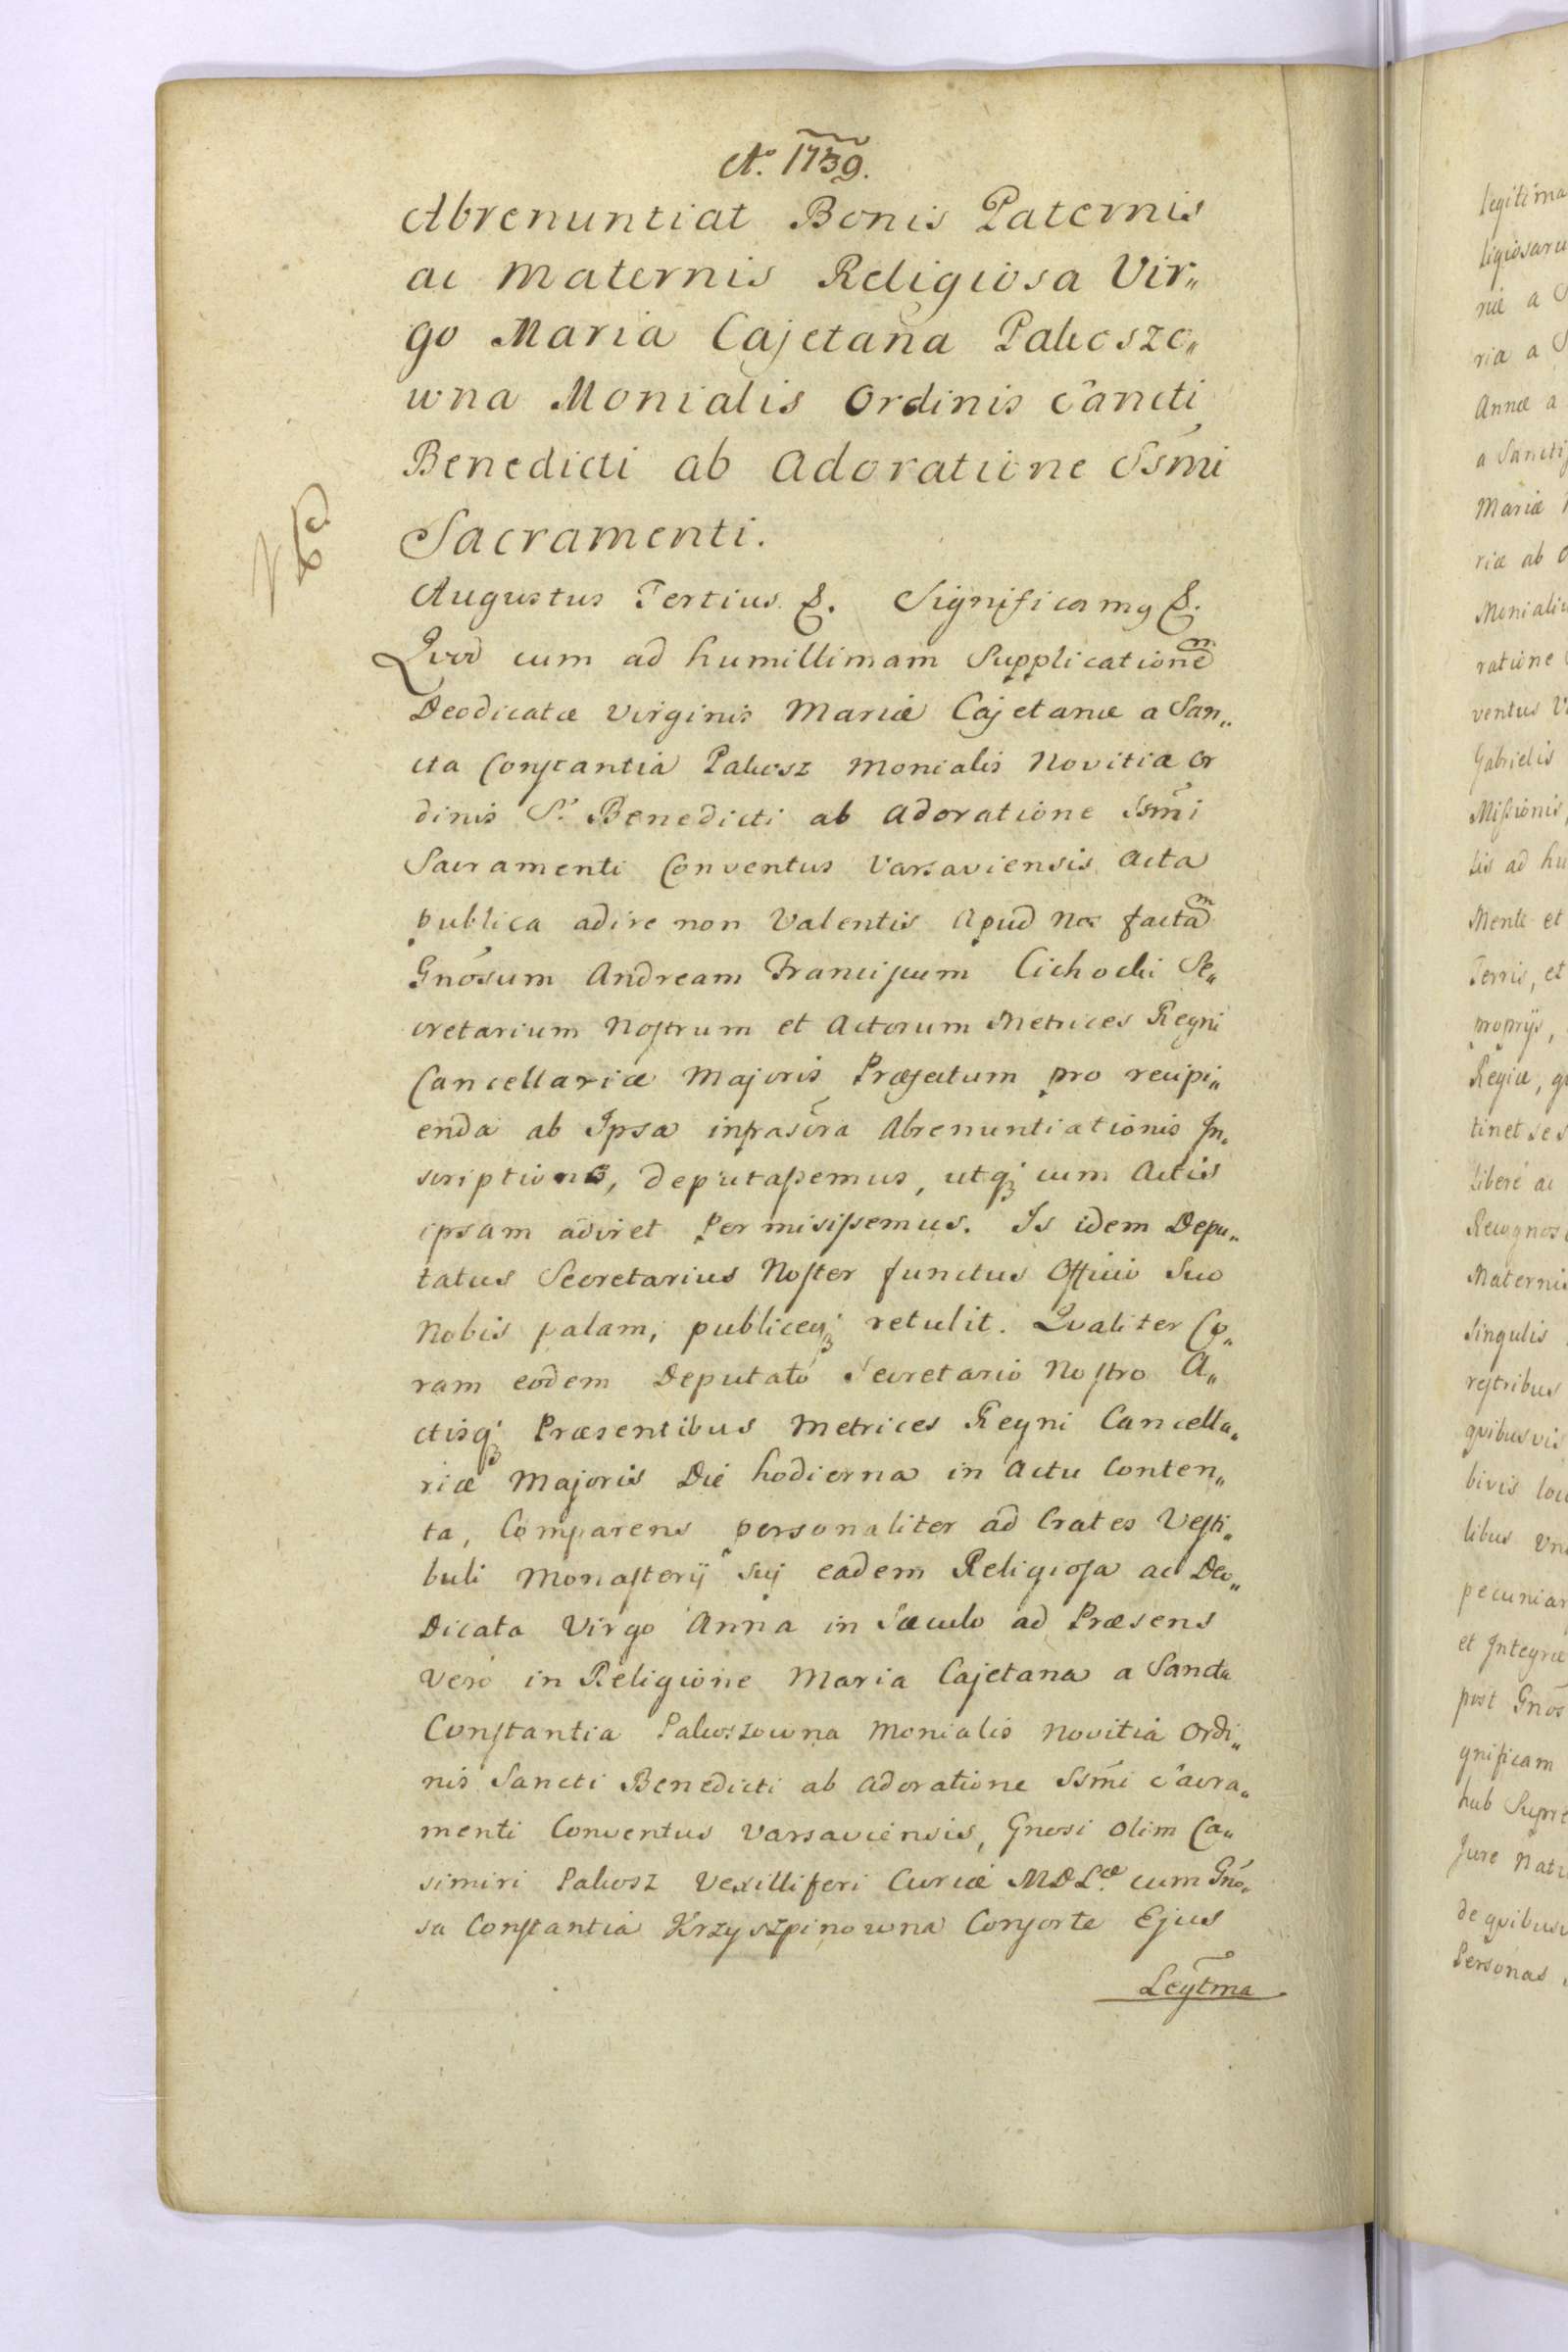 Ao. 1739.
Abrenuntiat Bonis Paternis
ac Maternis Religiosa Vir„
go Maria Cajetana Pakoszo„
wna Monialis Ordinis Sancti
Benedicti ab Adoratione Ssmi
Sacramenti.
Augustus Tertius &. Significamg &.
Qvod cum ad humillimam Supplicationem
Deodicatæ Virginis Mariæ Cajetanæ a San„
cta Constantia Pakosz Monialis Novitia Or
dinis S. Benedicti ab Adoratione Ssmi
Sacramenti Conventus Varsaviensis Acta
publica adire non Valentis Apud Nos factam
Gnosum Andream Franciscum Cichocki Se„
cretarium Nostrum et Actorum Metrices Regni
Cancellariæ Majoris Præfectum pro recipi„
enda ab Ipsa infrascra Abrenuntiationis In„
scriptione, deputassemus, utq; cum Actis
ipsam adiret permisissemus. Is idem Depu„
tatus Secretarius Noster functus Officio Suo
Nobis palam, publiceq; retulit. Qvaliter Co„
ram eodem Deputato Secretario Nostro A„
ctisq; Præsentibus Metrices Regni Cancella„
riæ Majoris Die hodierna in Actu Conten„
ta, Comparens personaliter ad Crates Vesti„
buli Monasterij Sui eadem Religiosa ac Deo„
Dicata Virgo Anna in Sæculo ad Præsens
Vero in Religione Maria Cajetana a Sancta
Constantia Pakoszowna Monialis Novitia Ordi„
nis Sancti Benedicti ab Adoratione Ssmi Sacra„
menti Conventus Varsaviensis, Gnosi olim Ca„
simiri Pakosz Vexilliferi Curiæ MDLæ cum Gno„
sa Constantia Krzyszpinowna Consorte Ejus
Legtma
legitima
ligiosaru
niæ a S
ria a S
Annæ a
a Sancti
Mariæ
riæ ab
Moniali
ratione
ventus V
Gabrielis
Missionis,
lis ad hu
Mente et
Terris, et
proprijs,
Regiæ, q
tinet se s
Libere ac
Recognos
Maternis
Singulis
restribus
qvibusvis
bivis loc
libus Un
pecuniar
et Integre
post Gnos
gnificam
hub Supre
Jure Nat
de qvibusv
Personas